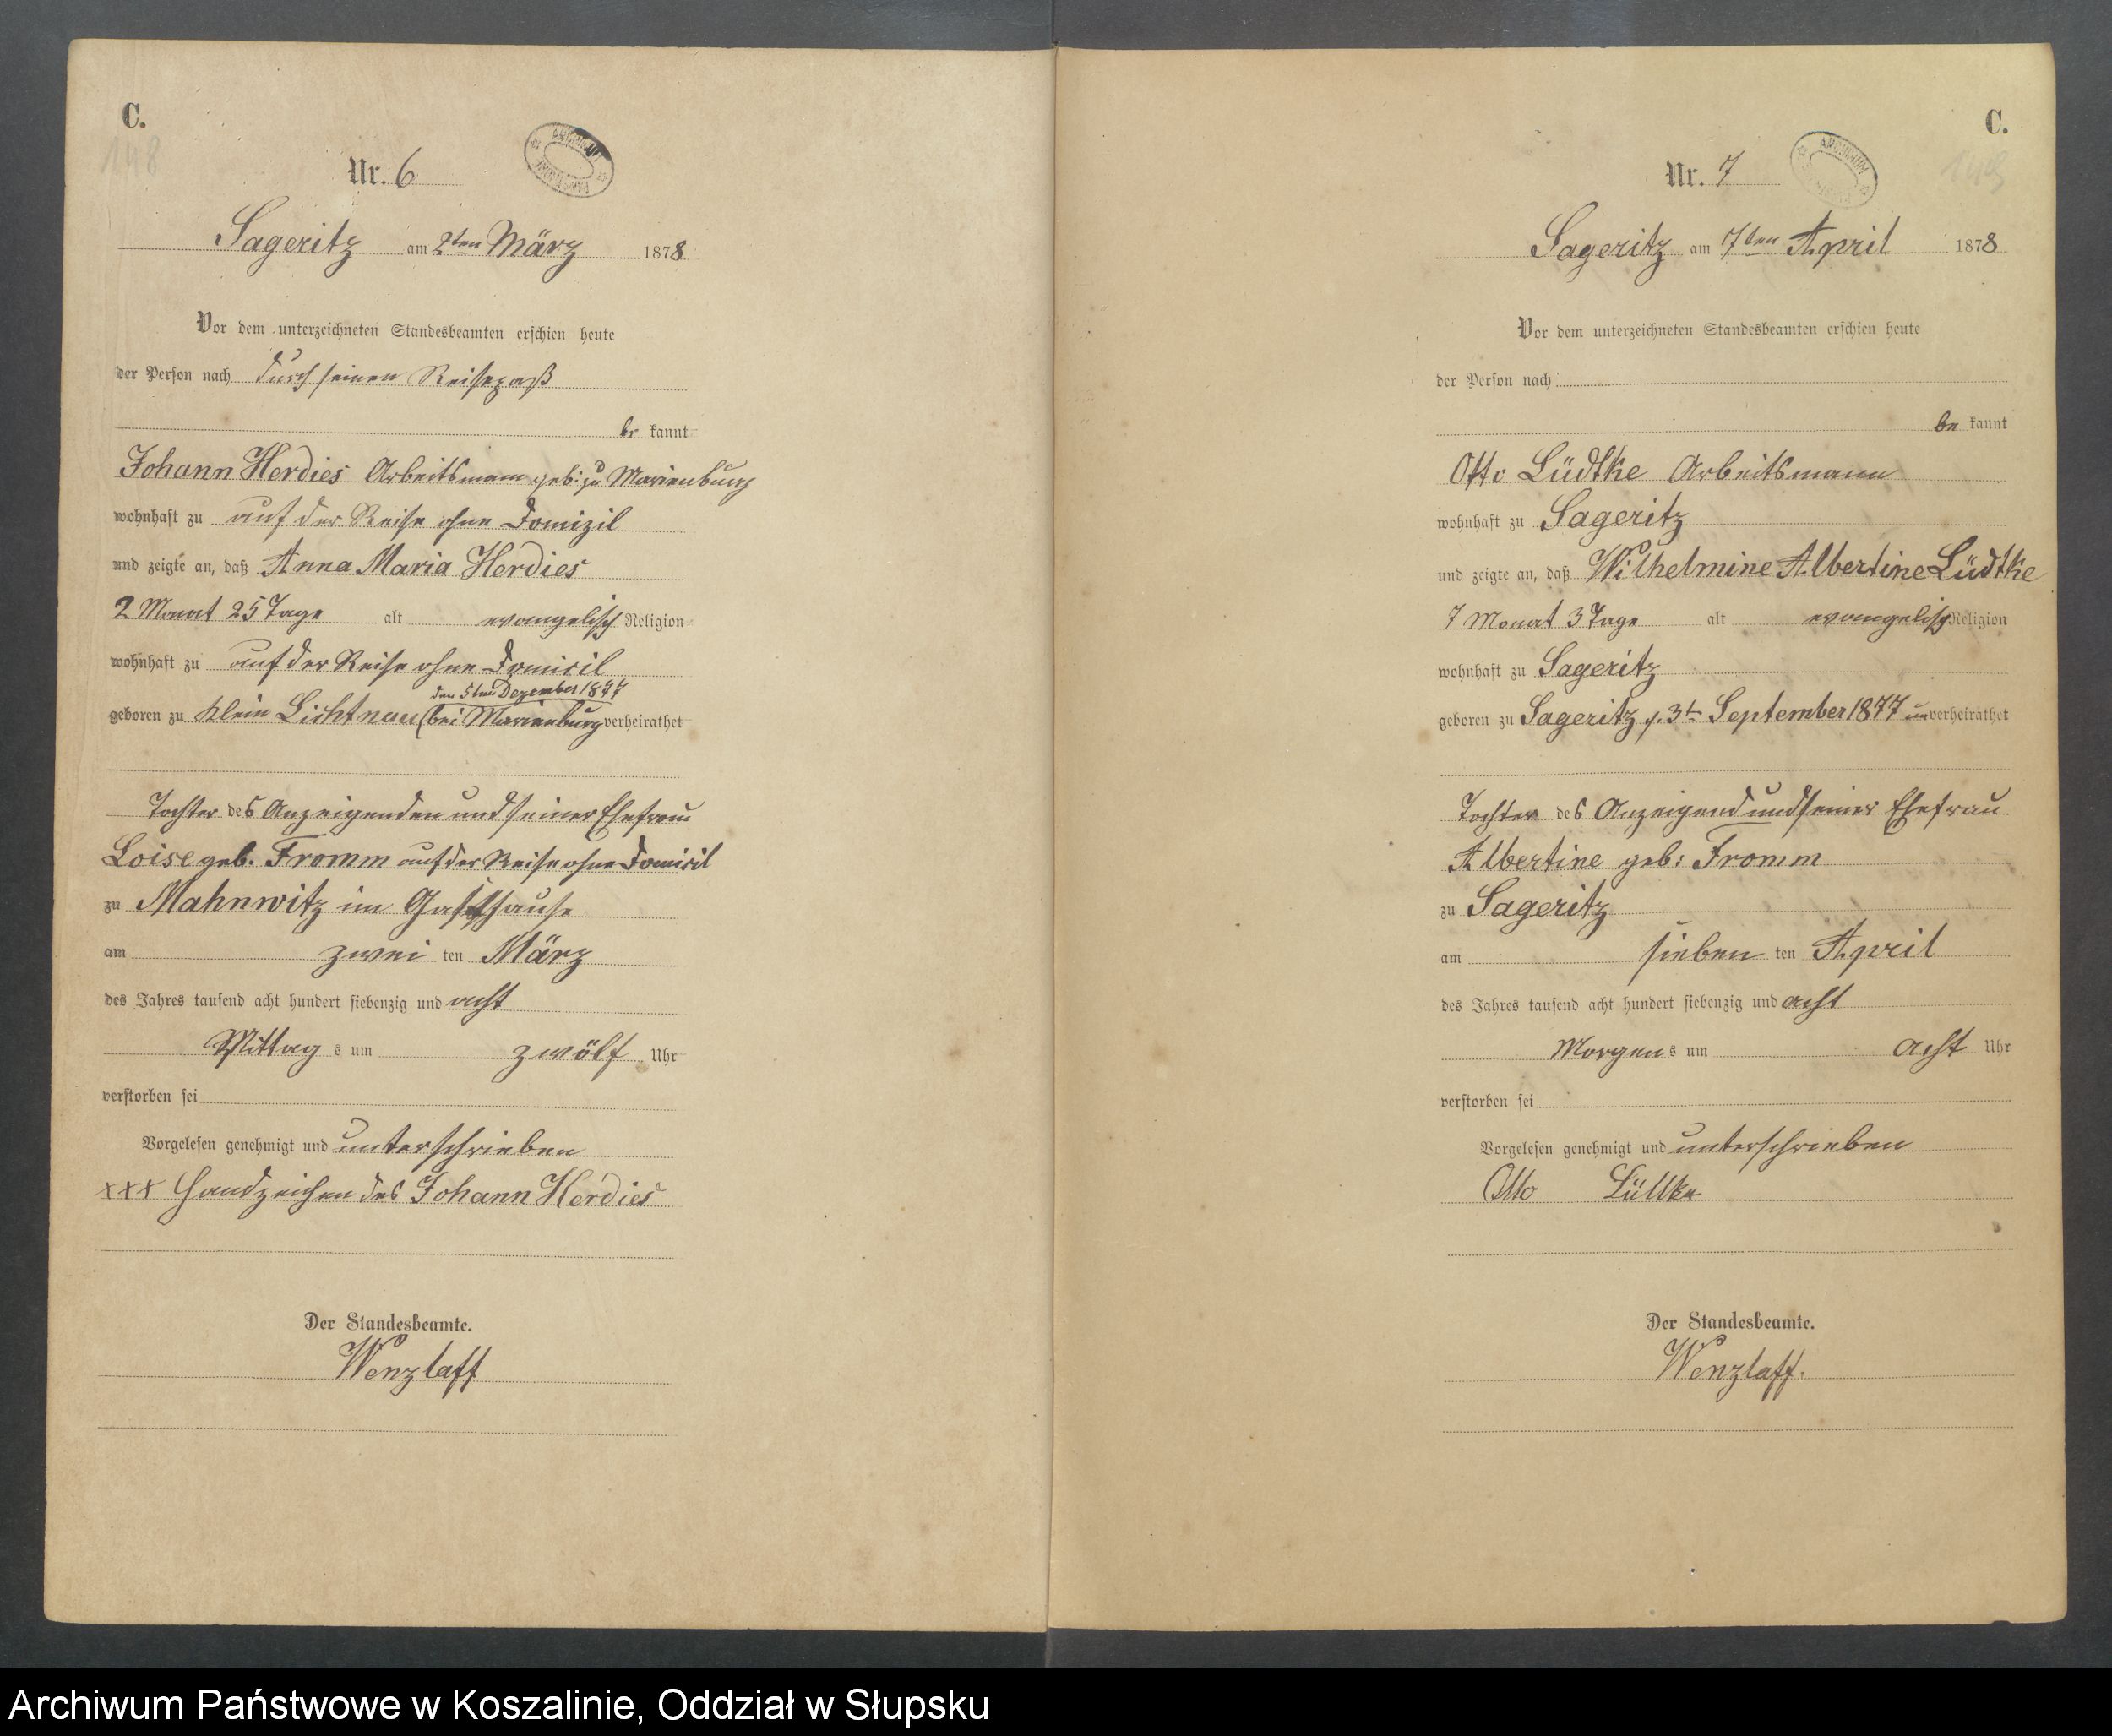 C.
148
Nr. 6
Sageritz am 2ten März 1878
Vor dem unterzeichneten Standesbeamten erschien heute
der Person nach durch seinen Reisepaß
be kannt
Johann Herdies Arbeitsmann geb: zu Marienburg
wohnhaft zu auf der Reise ohne Domizil
und zeigte an, daß Anna Maria Herdies
2 Monat 25 Tage alt evangelisch Religion
wohnhaft zu auf der Reise ohne Domicil
den 5ten Dezember 1877
geboren zu Klein Lichtnau (bei Marienburg verheirathet
Tochter des Anzeigenden und seiner Ehefrau
Loise geb. Fromm auf der Reise ohne Domicil
zu Mahnwitz im Gasthause
am zwei ten März
des Jahres tausend acht hundert siebenzig und acht
Mittag s um zwölf Uhr
verstorben sei
Vorgelesen genehmigt und unterschrieben
xxx Handzeichen des Johann Herdies
Der Standesbeamte.
Wenzlaff
C.
Nr. 7
Sageritz am 7ten April 1878
Vor dem unterzeichneten Standesbeamten erschien heute
der Person nach
be kannt
Otto Lüdtke Arbeitsmann
wohnhaft zu Sageritz
und zeigte an, daß Wilhelmine Albertine Lüdtke
7 Monat 3 Tage alt evangelisch Religion
wohnhaft zu Sageritz
geboren zu Sageritz 3t September 1877 unverheirathet
Tochter des Anzeigend und seiner Ehefrau
Albertine geb: Fromm
zu Sageritz
am sieben ten April
des Jahres tausend acht hundert siebenzig und acht
Morgens um acht Uhr
verstorben sei
Vorgelesen genehmigt und unterschrieben
Otto Lüttke
Der Standesbeamte.
Wenzlaff.
Archiwum Państwowe w Koszalinie, Oddział w Słupsku